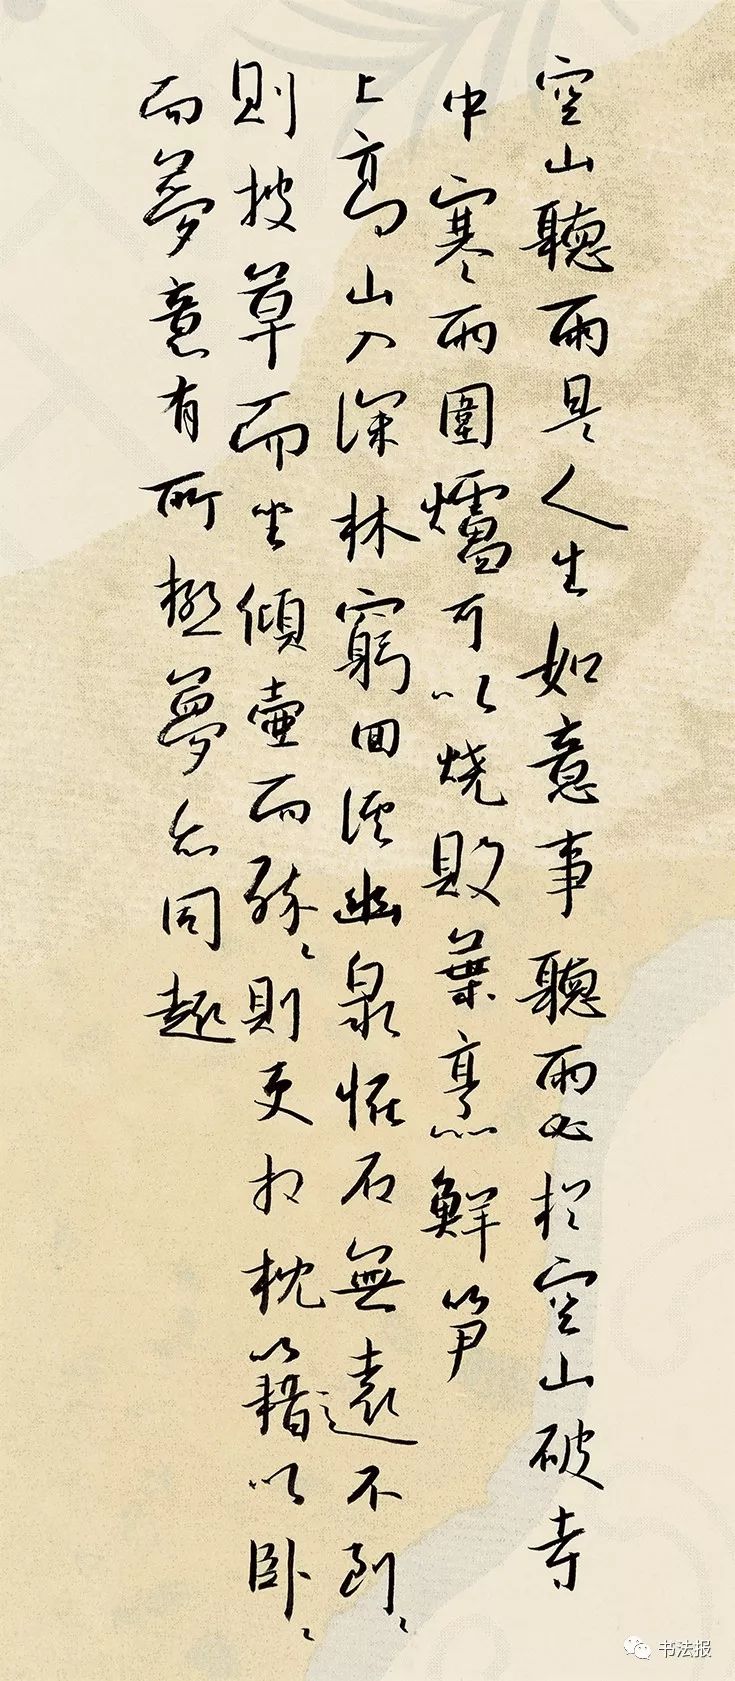 空山聽雨是人生如意事聽雨必於空山破寺
中寒雨圍爐可以燒敗葉烹鮮筍
上高山入深林窮回溪幽泉怪石無遠不到〻
則披草而坐傾壺而醉〻則更相枕以籍以卧〻
而夢意有所極夢亦同趣
书法报